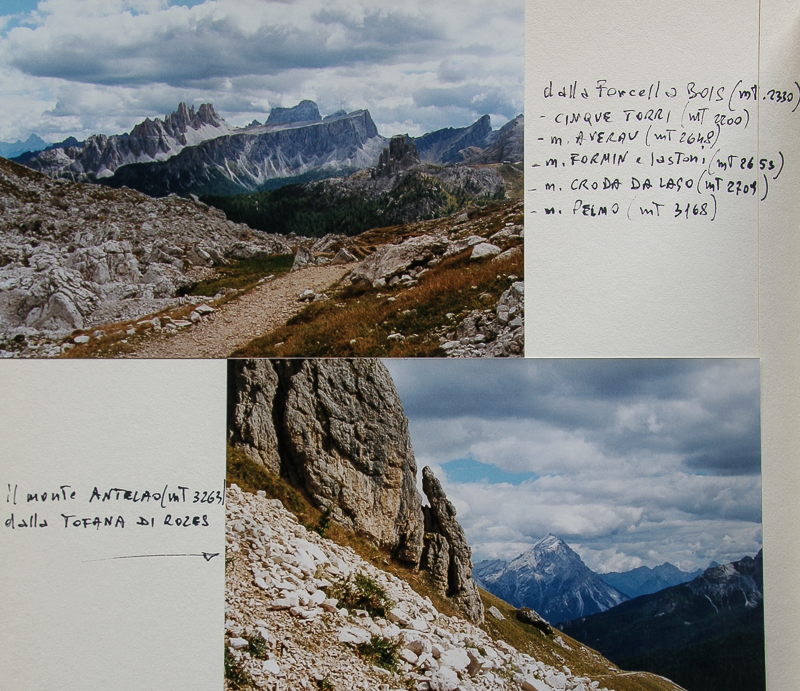 dalla Forcella BOIS (mT. 2330)
- CINQUE TORRI (mT 2200)
- m. AVERAU (mT 2648)
- m. FORMIN e lastoni (mT 2653)
- m. CRODA DA LAGO (mT 2709)
- m. PELMO (mT 3168)
il monte ANTELAO (mT 3263)
dalla TOFANA DI ROZES